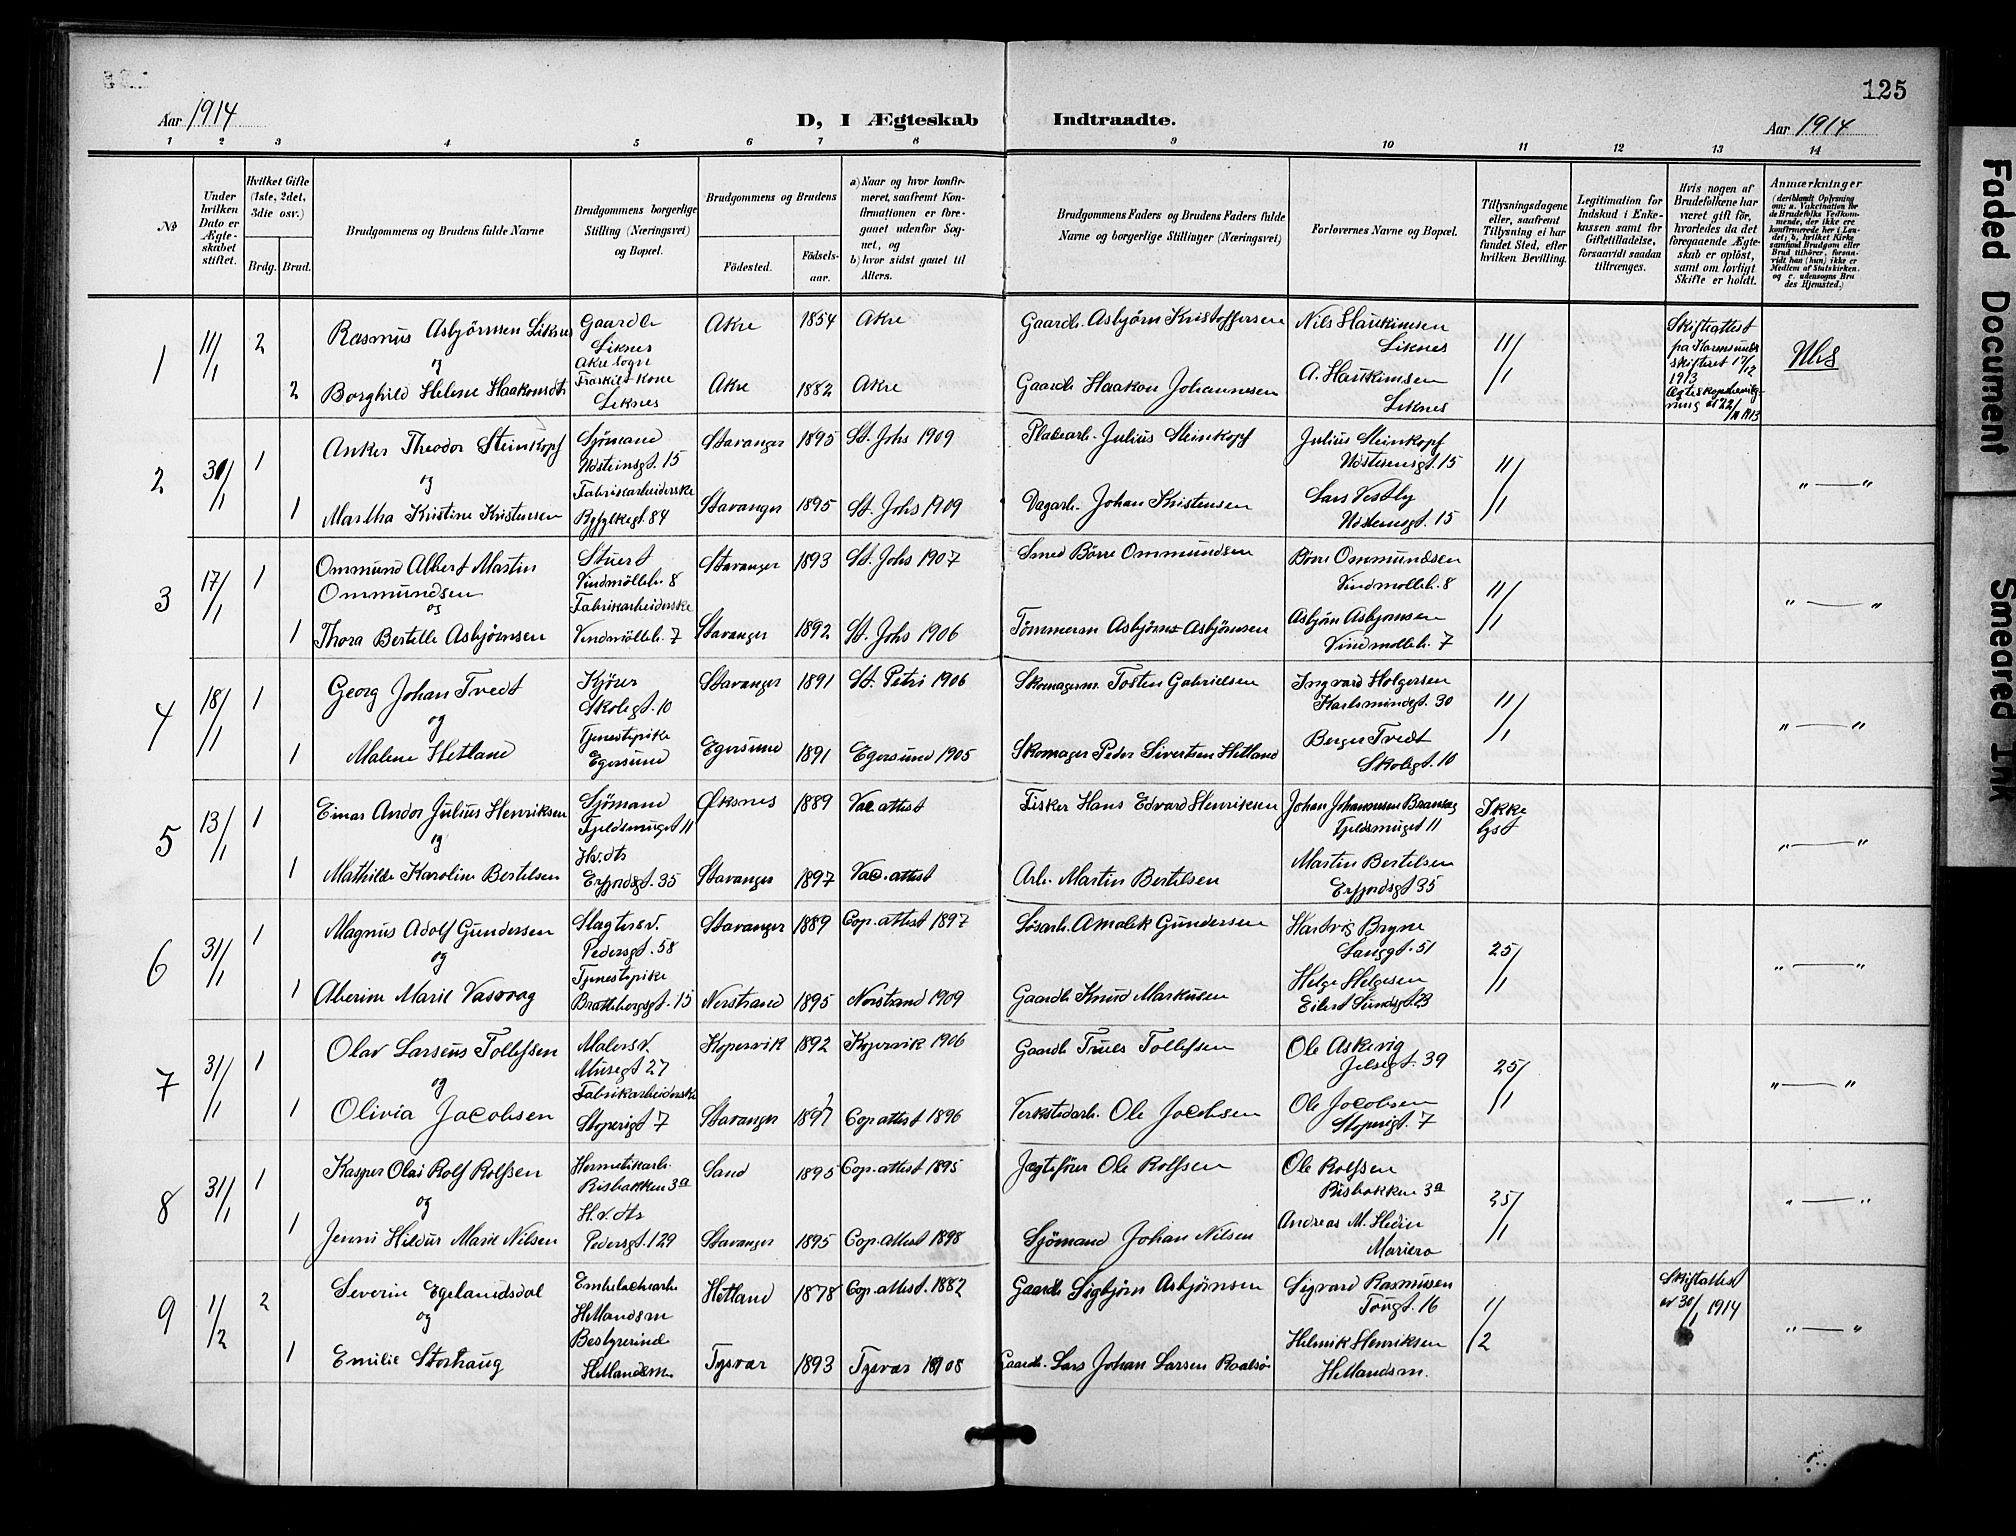 125
Aar 1914
D, I Ægteskab Indtraadte.
Aar 1914
1 2 3 4 5 6 7 8 9 10 11 12 13 14
№
Under hvilken Dato er Ægteskabet stiftet.
Hvilket Gifte (1ste, 2det, 3die osv.)
Brdg. Brud.
Brudgommens og Brudens fulde Navne
Brudgommens borgerlige Stilling (Næringsvei) og Bopæl.
Brudgommens og Brudens
Fødested.
Fødselsaar.
a) Naar og hvor konfirmeret, saafremt Konfirmationen er foregaaet udenfor Sognet, og
b) hvor sidst gaaet til Alters.
Brudgommens Faders og Brudens Faders fulde Navne og borgerlige Stillinger (Næringsvei)
Forlovernes Navne og Bopæl.
Tillysningsdagene eller, saafremt Tillysning ei har fundet Sted, efter hvilken Bevilling.
Legitimation for Indskud i Enkekassen samt for Giftetilladelse, forsaavidt saadan tiltrænges.
Hvis nogen af Brudefolkene har været gift før, hvorledes da det foregaaende Ægteskab er opløst, samt om lovligt Skifte er holdt.
Anmærkninger
(deriblandt Oplysning om: a. Vakcination for de Brudefolks Vedkommende, der ikke ere konfirmerede her i Landet; b. hvilket Kirkesamfund Brudgom eller Brud tilhører, forsaavidt han (hun) ikke er Medlem af Statskirken, og c. udensogns Brudes Hjemsted.)
1 11/1 2 Rasmus Asbjørnsen Liknes Gaardb Liknes Akre 1854 Akre Gaardb. Asbjørn Kristoffersen Nils Haukimsen Liknes 11/1
og Akre sogn
2 Borghild Helene Haakonsdtr Fraskilt kone Liknes Akre 1882 Akre Gaardb Haakon Johannesen A. Haukimsen Liknes
Skifteattest
fra Karmsunds
skifteret 17/12
1913
2 31/1 1 Anker Theodor Steinkopf Sjømand Stavanger 1895 St. Johs 1909 Pladearb. Julius Steinkopf Julius Steinkopf 11/1 " — "
og
1 Martha Kristine Kristensen Fabrikarbeiderske Ryfylkegt 84 Stavanger 1895 St. Johs 1909 Dagarb. Johan Kristensen Lars Vestly
3 17/1 1 Ommund Albert Martin Ommundsen Stuert Vindmølleb. 8 Stavanger 1893 St. Johs 1907 Smed Børre Ommundsen Børre Ommundsen Vindmolleb. 8 11/1 " — "
og
1 Thora Bertille Asbjørnsen Fabrikarbeiderske Vindmølleb. 7 Stavanger 1892 St. Johs 1906 Tømmerm Asbjørn Asbjørnsen Asbjørn Asbjørnsen Vindmolleb. 7
4 18/1 1 Georg Johan Tvedt Kjører Skolegt. 10 Stavanger 1891 St. Petri 1906 Skomagerm. Tosten Gabrielsen Ingvard Holgersen Karlsmindegt. 30 11/1 " — "
og
1 Malene Hetland Tjenestepike Egersund Egersund 1891 Egersund 1905 Skomager Peder Sivertsen Hetland Berger Tvedt Skolegt. 10
5 13/1 1 Einar Andor Julius Henriksen Sjømand Fjeldsmuget 11 Øksnes 1889 Vac. attest Fisker Hans Edvard Henriksen Johan Johannesen Fjeldsmuget 11 Ikke lyst " — "
og
1 Mathilde Karoline Bertelsen H.v. dts Erfjordsgt. 35 Stavanger 1897 Vac. attest Arb. Martin Bertelsen Martin Bertelsen Erfjordsgt 35
6 31/1 1 Magnus Adolf Gundersen Slagtersv. Pedersgt. 58 Stavanger 1889 Cop. attest 1897 Løsarb. Amalek Gundersen Hartvig Bryne Langgt. 51 25/1 " — "
og
1 Aberine Marie Tjenestepike Brattebergsgt. 15 Nerstrand 1895 Nerstrand 1909 Gaardb Knud Markusen Helge Helgesen Eilert Sundsgt 23
7 31/1 1 Olav Larseus Tollefsen Malersv. Musegt 27 Kopervik 1892 Kopervik 1906 Gaardb Truls Tollefsen Ole Askevig Jelsegt. 39 25/1 " — "
og
1 Olivia Jacobsen Fabrikarbeiderske Støperigt 7 Stavanger 1897 Cop attest 1896 Verkstedarb. Ole Jacobsen Ole Jacobsen Støperigt. 7
8 31/1 1 Kasper Olai Rolf Rolfsen Hermetikarb. Risbakken 3a Sand 1895 Cop. attest 1895 Jægtefører Ole Rolfsen Ole Rolfsen Risbakken 3a 25/1 " — "
og
1 Jenni Hildur Marie Nilsen H.v. dts Pedersgt. 129 Stavanger 1895 Cop. attest 1898 Sjømand Johan Nilsen Andreas M. Hedin Mariero
9 1/2 2 Severin Egelandsdal Hetlandsm Hetland 1878 Cop attest. 1882 Gaardb Sigbjørn Asbjørnsen Sigvard Rasmussen Tougt. 16 1/2 Skifteattest av 30/1 1914 " — "
og
1 Emilie Storhaug Bestyrerinde Hetlandsm Tysvær 1893 Tysvær 1908 Gaardb. Lars Johan Larsen Henrik Henriksen Hetlandsm.
Faded Document
Smeared Ink